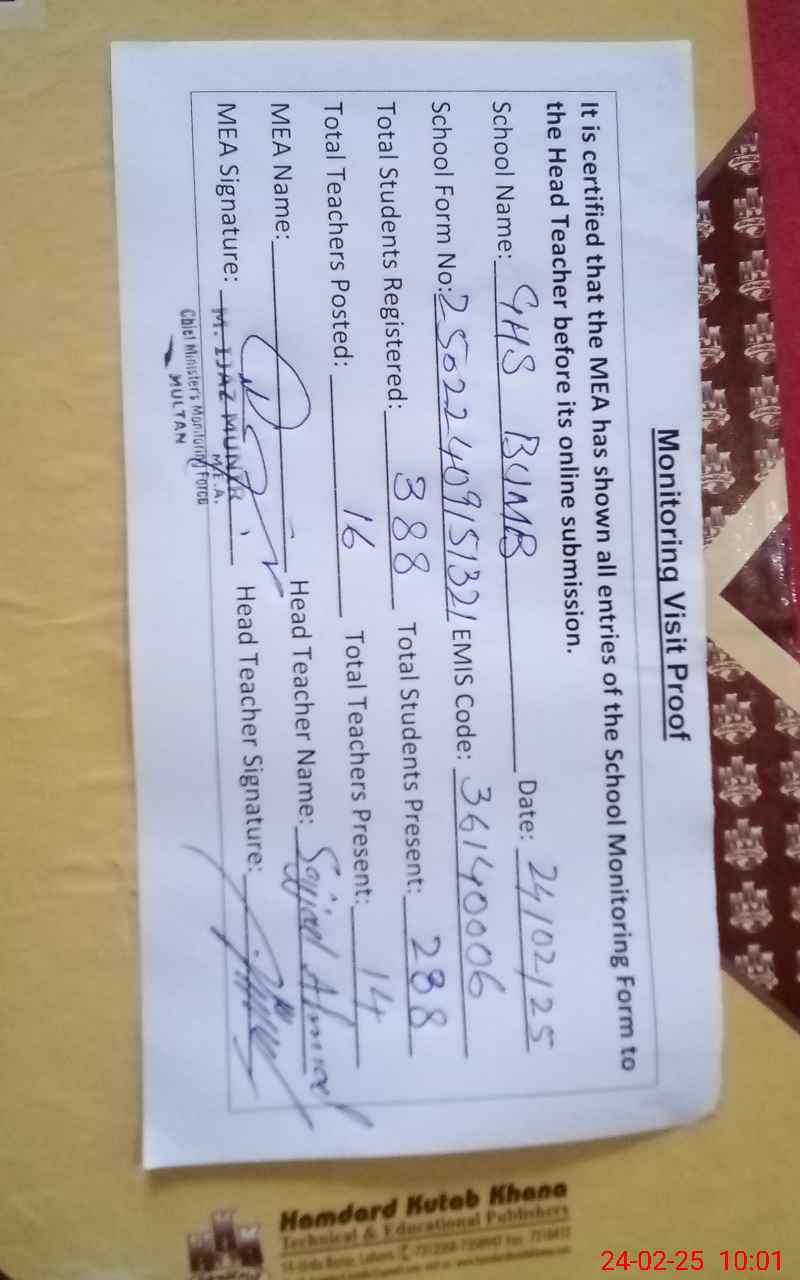 Monitoring Visit Proof
It is certified that the MEA has shown all entries of the School Monitoring Form to
the Head Teacher before its online submission.
School Name: GHS BUMB Date: 24/02/25
School Form No: 2502240915132/ EMIS Code: 36140006
Total Students Registered: 388 Total Students Present: 288
Total Teachers Posted: 16 Total Teachers Present: 14
MEA Name: Head Teacher Name: Sajjad Ahmad
MEA Signature: M. IJAZ MUNIR Head Teacher Signature:
M.E.A.
Chief Minister's Monitoring Force
MULTAN
Hamdard Kutab Khana
Technical & Educational Publishers
24-02-25 10:01